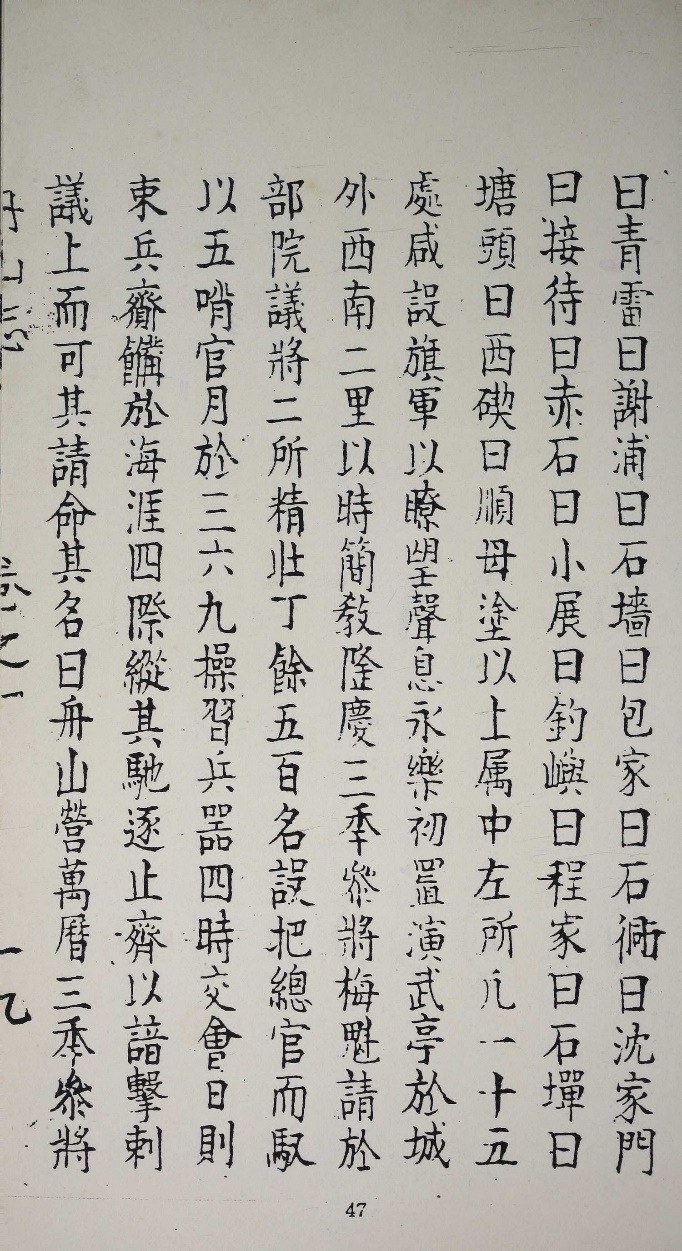 曰青雷曰謝浦曰石墻曰包家曰石衕曰沈家門
曰接待曰赤石曰小展曰釣嶼曰程家曰石墠曰
塘頭曰西碶曰順母塗以上属中左所凢一十五
處咸設旗軍以瞭朢聲息永樂初置演武亭於城
外西南二里以時簡敎隆慶三秊叅將梅魁請於
部院議將二所精壯丁餘五百名設把總官而馭
以五哨官月於三六九操習兵器四時交會日則
束兵齎餶於海涯四際縱其馳逐止齊以諳擊刺
議上而可其請命其名曰舟山營萬曆三秊叅將
舟山志 卷之一 一九
47